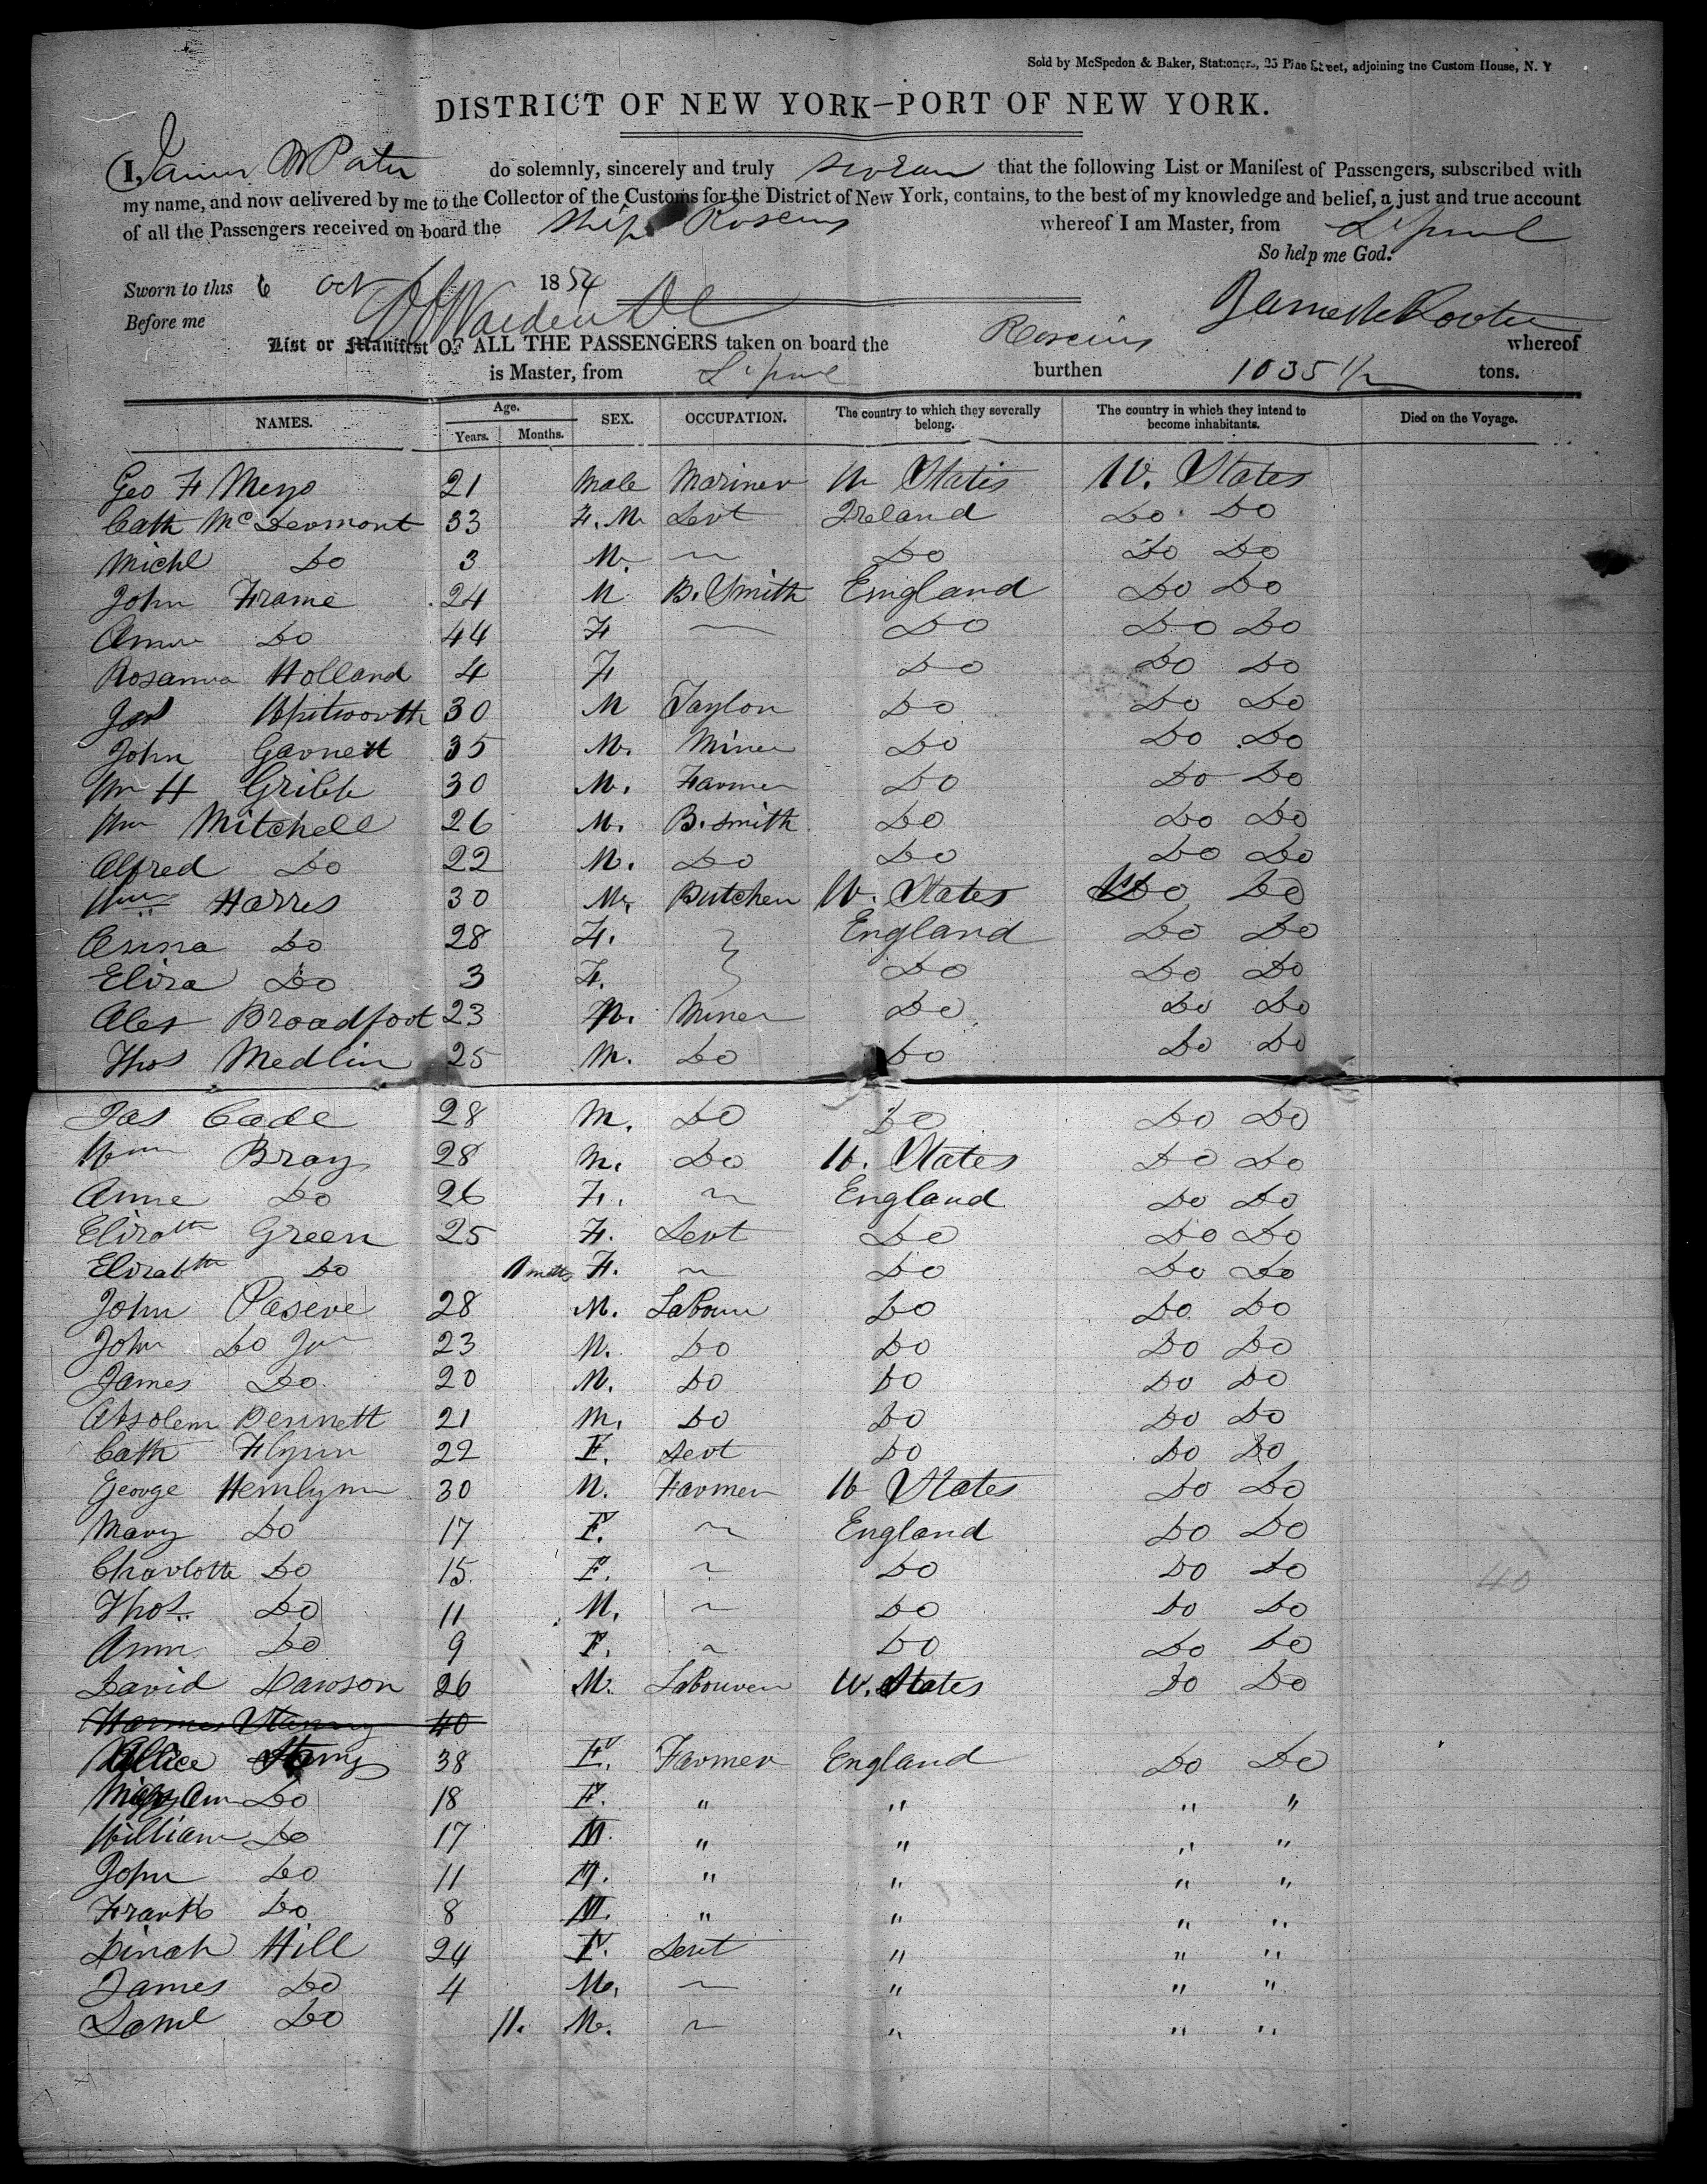 Sold by McSpedon & Baker, Stationers, 25 Pine Street, adjoining the Custom House, N. Y
DISTRICT OF NEW YORK—PORT OF NEW YORK.
I, James do solemnly, sincerely and truly swear that the following List or Manifest of Passengers, subscribed with
my name, and now delivered by me to the Collector of the Customs for the District of New York, contains, to the best of my knowledge and belief, a just and true account
of all the Passengers received on board the Ship Roscius whereof I am Master, from L'pool
So help me God.
Sworn to this 6 Oct 1854
Before me
List or Manifest OF ALL THE PASSENGERS taken on board the Roscius whereof
is Master, from L'pool burthen 1035 1/2 tons.
NAMES. Age. Years. Months. SEX. OCCUPATION. The country to which they severally belong. The country in which they intend to become inhabitants. Died on the Voyage.
Geo F Mego 21 Male Mariner U States U. States
Cath McDermont 33 F. M Sevt Ireland Do Do
Michl Do 3 M. ~ Do Do Do
John Frame 24 M B. Smith England Do Do
Ann Do 44 F — Do Do Do
Rosanna Holland 4 F Do Do Do
Whitworth 30 M Taylor Do Do Do
John Garnett 35 M. Miner Do Do Do
Wm H Gribb 30 M. Farmer Do Do Do
Wm Mitchell 26 M. B. smith Do Do Do
Alfred Do 22 M. Do Do Do Do
Wm Harres 30 M. Butcher U. States Do Do
Anna Do 28 F. England Do Do
Eliza Do 3 F. Do Do Do
Alex Broadfoot 23 M. Miner Do Do Do
Thos Medlin 25 M. Do Do Do Do
Jas Cade 28 M. Do Do Do Do
Wm Bray 28 M. Do U. States Do Do
Anne Do 26 F. ~ England Do Do
Elizath Green 25 F. Sevt Do Do Do
Elizabth Do mths F. ~ Do Do Do
John Paseve 28 M. Labour Do Do Do
John Do Jur 23 M. Do Do Do Do
James Do 20 M. Do Do Do Do
Absolem Bennett 21 M. Do Do Do Do
Cath Flynn 22 F. Sevt Do Do Do
George Hemlynn 30 M. Farmer U States Do Do
Mary Do 17 F. ~ England Do Do
Charlotte Do 15 F. ~ Do Do Do
Thos. Do 11 M. ~ Do Do Do
Ann Do 9 F. ~ Do Do Do
David Dawson 26 M. Labourer U. States Do Do
40
Allice 38 F. Farmer England Do Do
Mary Ann Do 18 F. " " " "
William Do 17 M. " " " "
John Do 11 M. " " " "
Frank Do 8 M. " " " "
Dinah Hill 24 F. Sevt " " "
James Do 4 M. ~ " " "
Saml Do 11. M. ~ " " "
40